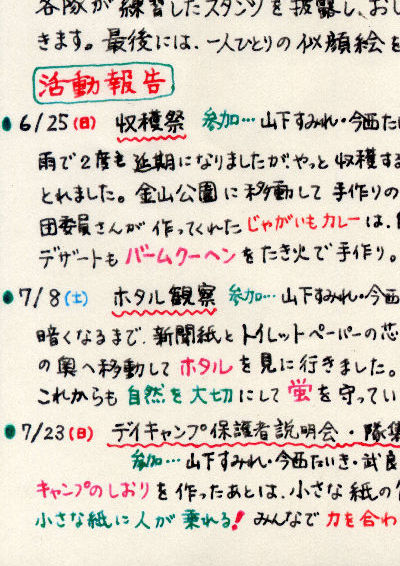 各隊が練習したスタンツを披露し、おし
きます。最後には、一人ひとりの似顔絵を
活動報告
6/25(日) 収穫祭 参加… 山下すみれ・今西た
雨で2度も延期になりましたが、やっと収穫する
とれました。金山公園に移動して手作りの
団委員さんが作ってくれたじゃがいもカレーは、
デザートもバームクーヘンをたき火で手作り。
7/8(土) ホタル観察 参加… 山下すみれ・今西
暗くなるまで、新聞紙とトイレットペーパーの芯
の奥へ移動してホタルを見に行きました。
これからも自然を大切にして蛍を守ってい
7/23(日) デイキャンプ保護者説明会・隊集
参加… 山下すみれ・今西たいき・武良
キャンプのしおりを作ったあとは、小さな紙の
小さな紙に人が乗れる! みんなで力を合わ